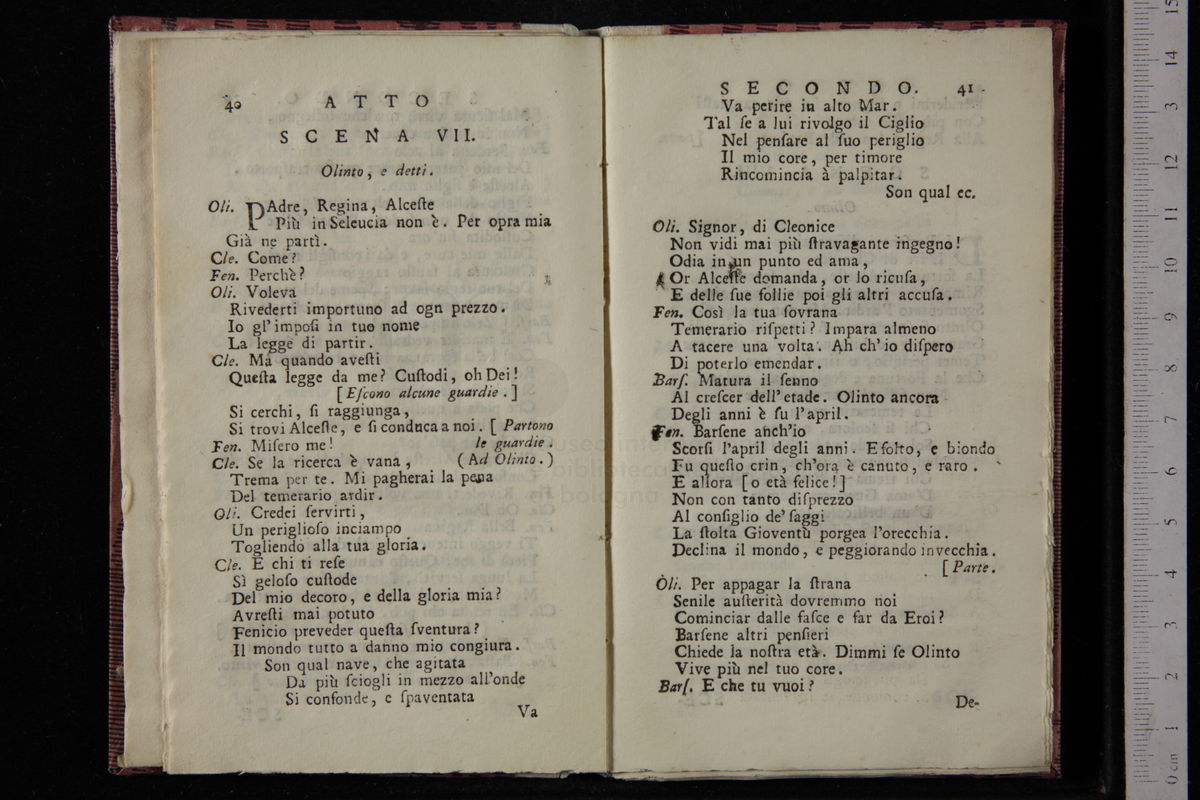 40 ATTO
SCENA VII.
Olinto, e detti.
Oli. PAdre, Regina, Alceſte
Più in Seleucia non è. Per opra mia
Già ne partì.
Cle. Come?
Fen. Perchè?
Oli. Voleva
Rivederti importuno ad ogn prezzo.
Io gl'impoſi in tuo nome
La legge di partir.
Cle. Ma quando aveſti
Queſta legge da me? Cuſtodi, oh Dei!
[Eſcono alcune guardie.]
Si cerchi, ſi raggiunga,
Si trovi Alceſte, e ſi conduca a noi. [Partono
Fen. Miſero me! le guardie.
Cle. Se la ricerca è vana, (Ad Olinto.)
Trema per te. Mi pagherai la pena
Del temerario ardir.
Oli. Credei ſervirti,
Un periglioſo inciampo
Togliendo alla tua gloria.
Cle. E chi ti reſe
Sì geloſo cuſtode
Del mio decoro, e della gloria mia?
Avreſti mai potuto
Fenicio preveder queſta ſventura?
Il mondo tutto a danno mio congiura.
Son qual nave, che agitata
Da più ſciogli in mezzo all'onde
Si confonde, e ſpaventata
Va
SECONDO. 41
Va perire in alto Mar.
Tal ſe a lui rivolgo il Ciglio
Nel penſare al ſuo periglio
Il mio core, per timore
Rincomincia à palpitar.
Son qual ec.
Oli. Signor, di Cleonice
Non vidi mai più ſtravagante ingegno!
Odia in un punto ed ama,
Or Alceſte domanda, or lo ricuſa,
E delle ſue follie poi gli altri accuſa.
Fen. Così la tua ſovrana
Temerario riſpetti? Impara almeno
A tacere una volta. Ah ch'io diſpero
Di poterlo emendar.
Barſ. Matura il ſenno
Al creſcer dell'etade. Olinto ancora
Degli anni è ſu l'april.
Fen. Barſene anch'io
Scorſi l'april degli anni. E folto, e biondo
Fu queſto crin, ch'ora è canuto, e raro.
E allora [o età felice!]
Non con tanto diſprezzo
Al conſiglio de' ſaggi
La ſtolta Gioventù porgea l'orecchia.
Declina il mondo, e peggiorando invecchia.
[Parte.
Oli. Per appagar la ſtrana
Senile auſterità dovremmo noi
Cominciar dalle faſce e far da Eroi?
Barſene altri penſieri
Chiede la noſtra età. Dimmi ſe Olinto
Vive più nel tuo core.
Barſ. E che tu vuoi?
De-